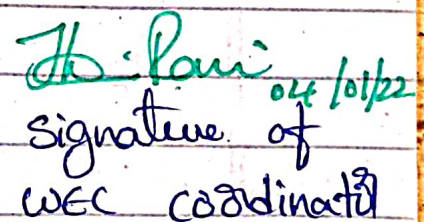 Rani
04/01/22
signature of
WEC coordinator